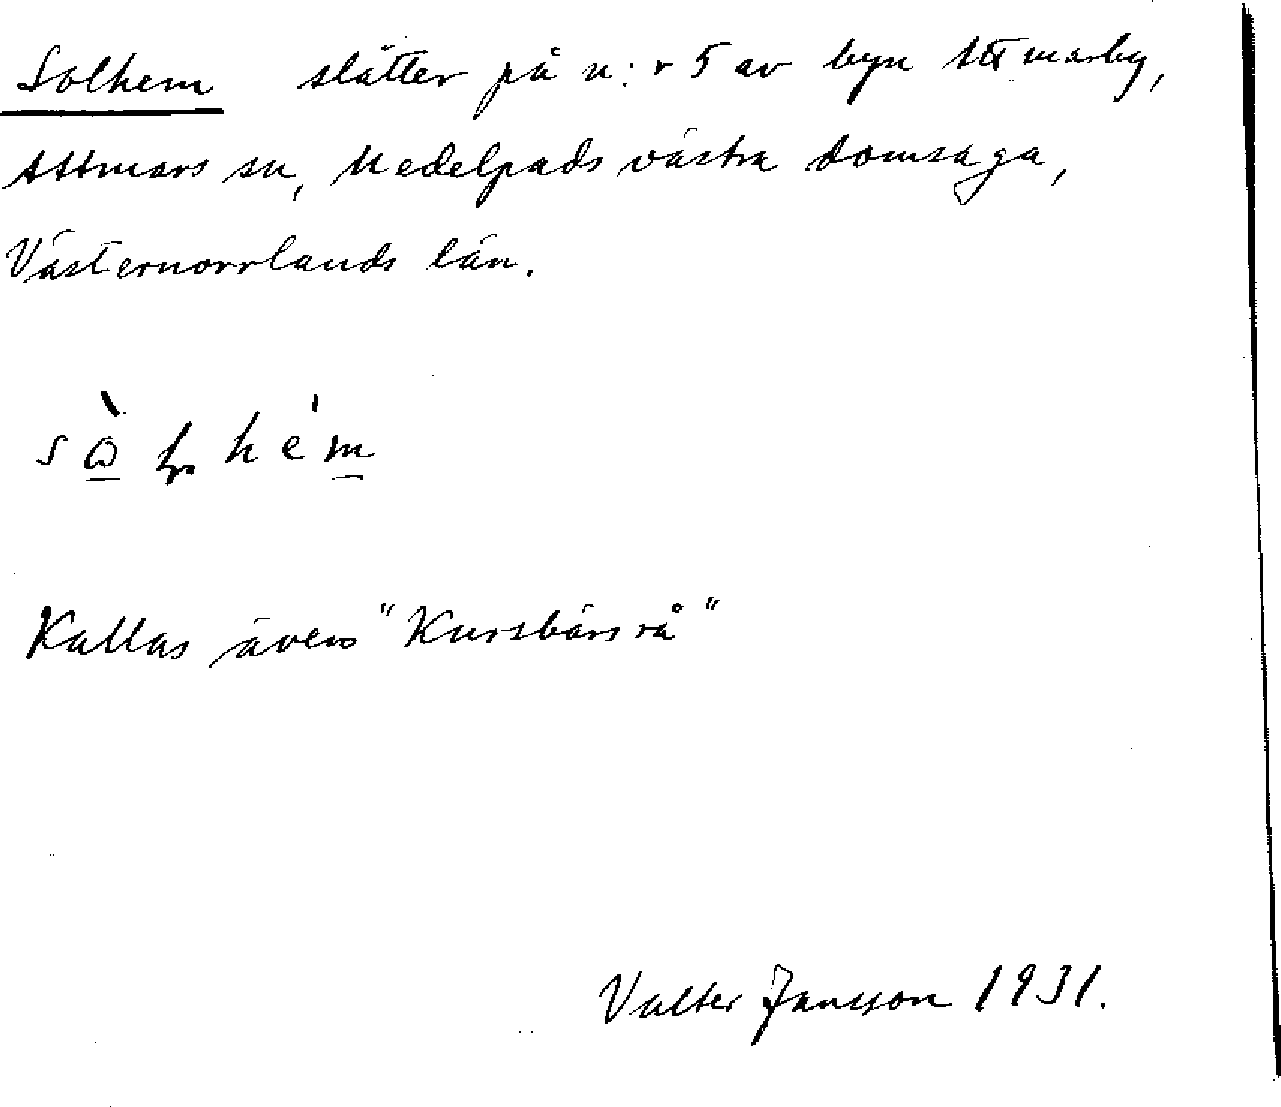 Solhem slätter på n:r 5 av byn Attmarby,
Attmars sn, Medelpads västra domsaga,
Västernorrlands län.
Kallas även "Kursbärsrå"
Valter Jansson 1931.